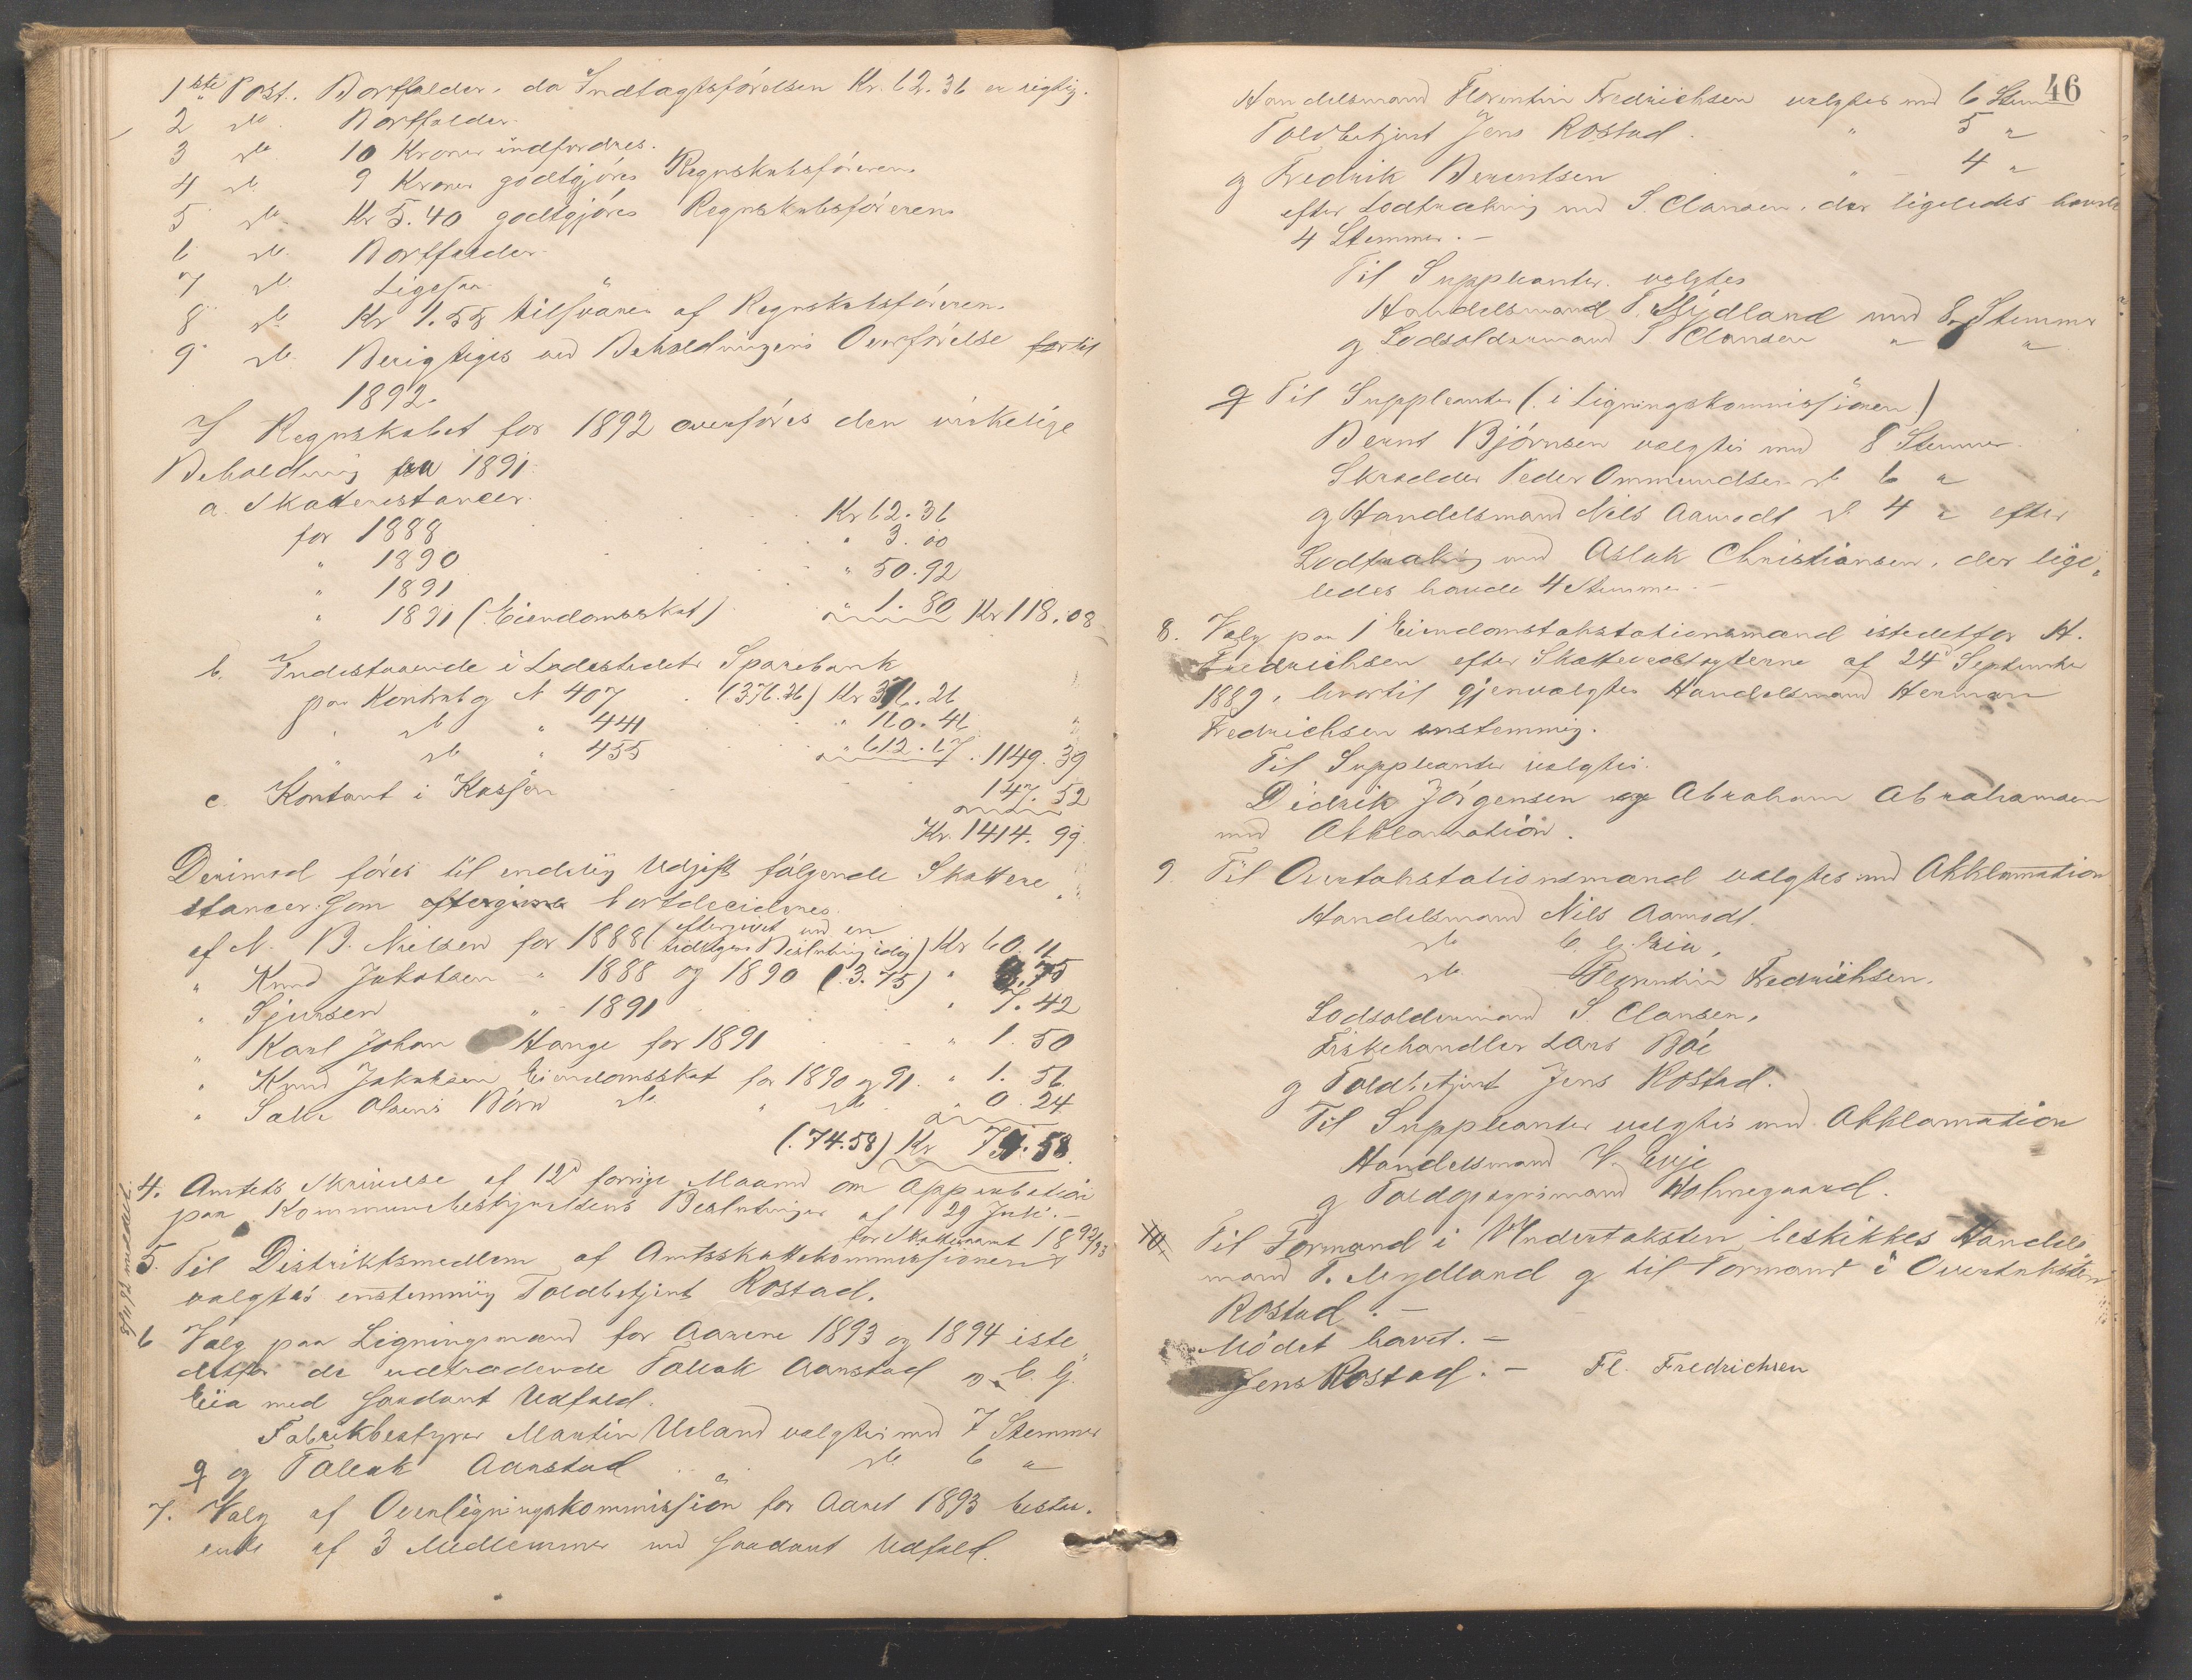 1ste Post. Bortfalder, da Indtægtsførelsen Kr. 62.36 er rigtig.
2 do. Bortfalder.
3 do. 10 Kroner indfordres.
4 do. 9 Kroner godtgjøres Regnskabsføreren.
5 do. Kr 5.40 godtgjøres Regnskabsføreren
6 do. Bortfalder
7 do. Ligesaa.
8 do. Kr 1.55 tilsvares af Regnskabsføreren.
9 do. Berigtiges ved Beholdningens Overførelse til
1892.
I Regnskabet for 1892 overføres den virkelige
Beholdning fra 1891:
a. Skatterestancer.
for 1888 Kr 62.36
" 1890 " 3.00
" 1891 " 50.92
" 1891 (Eiendomsskat) " 1.80 Kr 118.08
b. Indestaaende i Ladestedets Sparebank
paa Kontrabog N 407 (376.26) Kr 376.26
" do " 441 " 160.46
" do " 455 " 612.67 . 1149.39
c. Kontant i Kassen 147.52
Kr. 1414.99.
Derimod føres til endelig Udgift følgende Skattere
stancer som bortdecideres.
af N. B. Nielsen for 1888 (eftergivet ved en
tidligere Beslutning) Kr 60.11
" Knud Jakobsen " 1888 og 1890 (3.75) " 3.75
" Sjursen " 1891 " 7.42
" Karl Johan Hauge for 1891 " 1.50
" Knud Jakobsen Eiendomsskat for 1890 og 91. " 1.56
" Salve Olsens Børn do. " do. " 0.24
(74.58) Kr 74.58.
4. Amtets Skrivelse af 12d forrige Maaned om Approbation
paa Kommunebestyrelsens Beslutninger af 29 Juli. -
for Skatteaaret 1892/93
5. Til Distriktsmedlem af Amtsskattekommissionen
valgtes enstemmig Toldbetjent Rostad.
6 Valg paa Ligningsmænd for Aarene 1893 og 1894 iste
detfor de udtrædende Tollak Aanstad og C. G.
Eia med saadant Udfald.
Fabrikbestyrer Martin Ueland valgtes med 7 Stemmer
og Tollak Aanstad do. 6 "
7. Valg af Overligningskommission for Aaret 1893 bestaa-
ende af 3 Medlemmer med saadant Udfald.
46
Handelsmand Florentin Fredrichsen valgtes med 6 Stemmer
Toldbetjent Jens Rostad. " 5 "
og Fredrik Berentsen " 4 "
efter Lodtrækning med S. Clausen, der ligeledes havde
4 Stemmer. -
Til Suppleanter valgtes
Handelsmand T. Mydland med 8 Stemmer
og Lodsoldermand S Clausen " "
Til Suppleanter (i Ligningskommissionen)
Bernt Bjørnsen valgtes med 8 Stemmer.
Skrædder Peder Ommundsen do 6 "
og Handelsmand Nils Aamodt do. 4 " efter
Lodtrækning med Aslak Christiansen, der lige-
ledes havde 4 Stemmer. -
8. Valg paa 1 Eiendomstakstationsmand istedetfor H.
Fredrichsen efter Skattevedtægterne af 24de September
1889, hvortil gjenvalgtes Handelsmand Herman
Fredrichsen enstemmig.
Til Suppleanter valgtes.
Didrik Jørgensen og Abraham Abrahamsen
med Akklamation.
9. Til Overtakstationsmænd valgtes med Akklamation
Handelsmand Nils Aamodt.
do C. G. Eia,
do. Florentin Fredrichsen.
Lodsoldermand S. Clausen,
Fiskehandler Lars Bøe
og Toldbetjent Jens Rostad.
Til Suppleanter valgtes med Akklamation
Handelsmand V. Evje
og Toldopsynsmand Holmegaard.
10, Til Formand i Undertaksten beskikkes Handels
mand T. Mydland og til Formand i Overtaksten
Rostad. -
Mødet hævet. -
Jens Rostad. - Fl. Fredrichsen